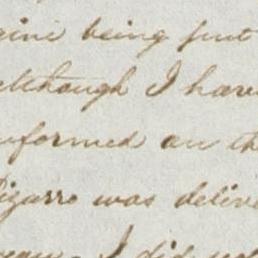 being just
although I have
formed on th
Pizarro was delive
I did not